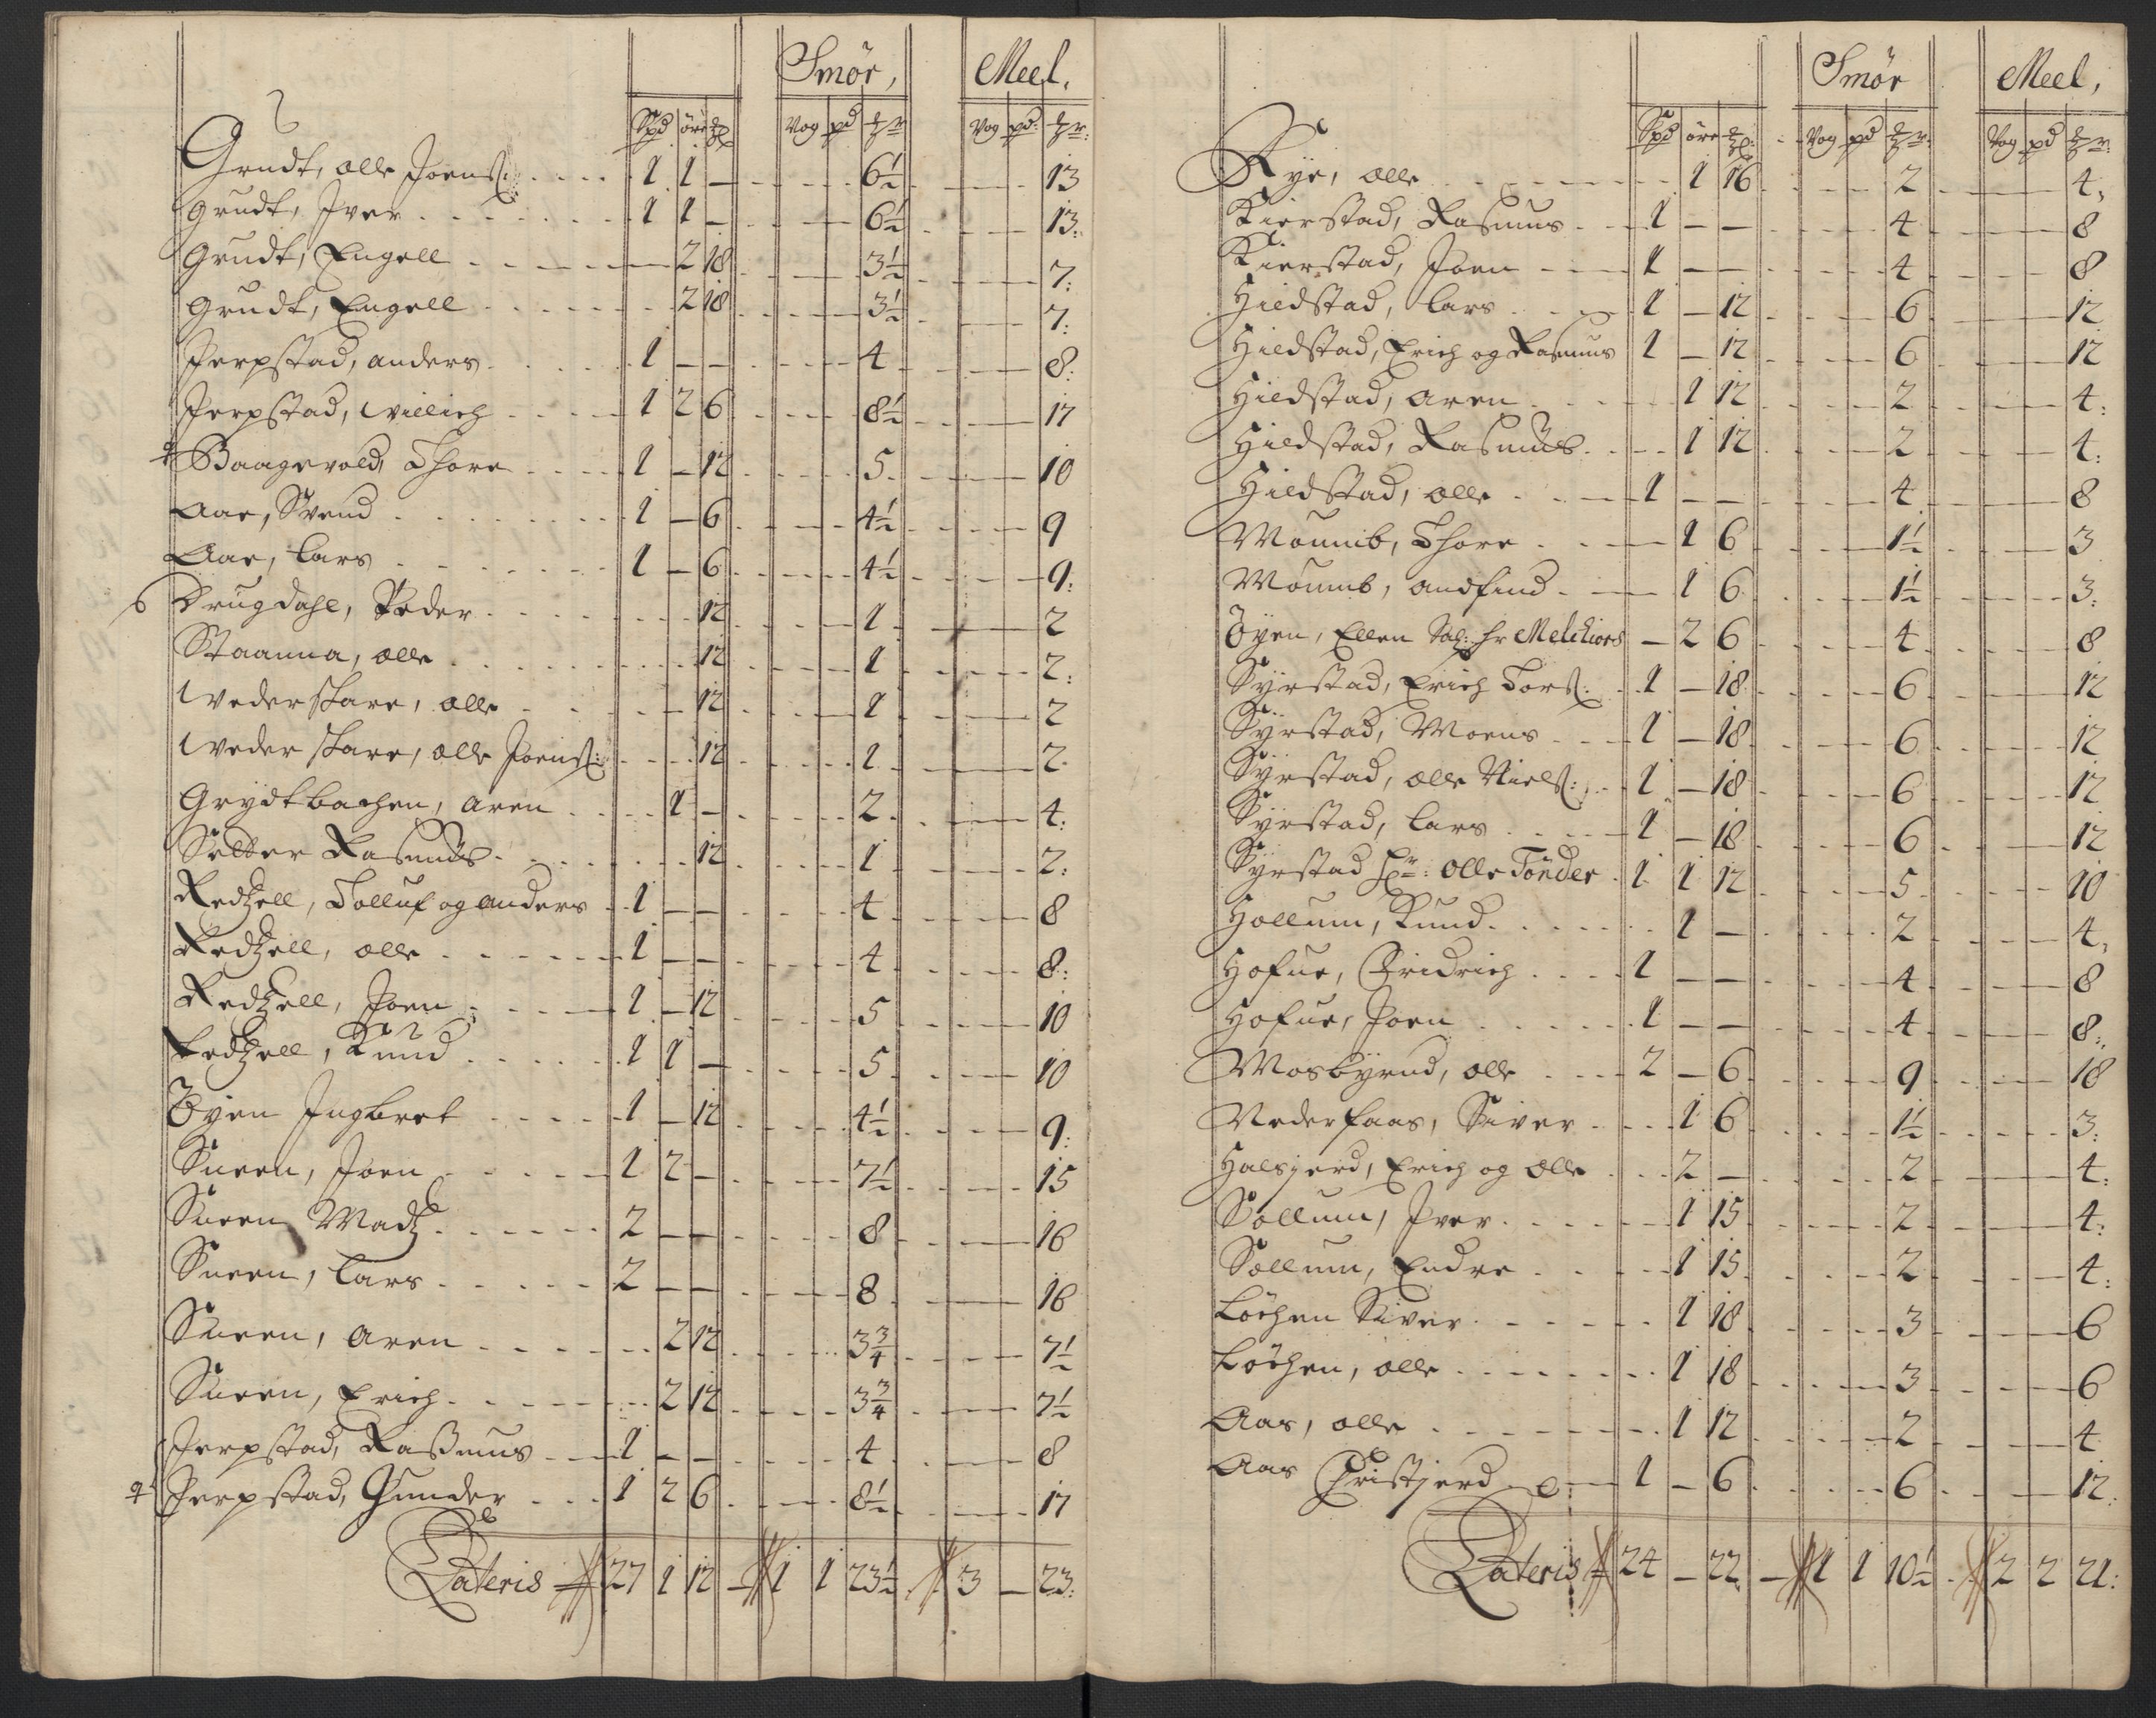 Smör, Meel,
Spd öre Vog pd Vog pd:
Grudt, olle Joenss: 1 1 — 6½ 13
Grudt, Iver 1 1 — 6½ 13:
Grudt, Engell — 2 18 3½ 7:
Grudt, Engell 2 18 3½ 7:
Jerpstad, anders 1 — — 4 8:
Jerpstad, Willich 1 2 6 8½ 17
Baagevold, Thore 1 — 12 5 10
Aae, Svend 1 — 6 4½ 9
Aae, Lars 1 — 6 4½ 9:
6 Drugdahl, Peder 12 1 2
Staanna, olle 12 1 2:
Wederskare, olle — 12 1 2
Weder skare, olle Joenss: 12 1 2
Grydtbachen, Aren 1 — 2 4:
Rasmus 12 1 2:
Redzell, Tolluf og anders 1 — — 4 8
Redzell, olle 1 — — 4 8:
Redzell, Joen 1 — 12 5 10
Redzell, Knud 1 1 — 5 10
Öyen Ingbret 1 — 12 4½ 9:
Sneen, Joen 1 2 — 7½ 15
Sneen Madz 2 — — 8 16
Sneen, Lars 2 — — 8 16
Sneen, Aren 2 12 3¾ 7½
Sneen, Erich 2 12 3¾ 7½
Jerpstad, Rassmus 1 — — 4 8
Jerpstad, Gunder 1 2 6 8½ 17
Lateris 27 1 12 — 1 1 23½ 3 — 23:
Smör Meel,
Spd öre Vog pd Vog pd
Rye, olle 1 16 2 4:
Kierstad, Rasmus 1 — — 4 8
Kierstad, Joen 1 — — 4 8
Hildstad, Lars 1 — 12 6 12
Hildstad, Erich og Rasmus 1 — 12 6 12
Hildstad, Aren 1 12 2 4:
Hildstad, Rasmus 1 12 2 4:
Hildstad, olle 1 — — 4 8
Thore — 1 6 1½ 3
andfind — 1 6 1½ 3:
Öyen, Ellen Sal: hr Melchiors — 2 6 4 8
Syrstad, Erich Torss: 1 — 18 6 12
Syrstad, Moens 1 — 18 6 12
Syrstad, olle Nielss: 1 — 18 6 12
Syrstad, Lars 1 — 18 6 12
Syrstad olle Tönder 1 1 12 5 10
Hollum, Knud 1 — 2 4,
Hofue, Fridrich 1 — — 4 8
Hofue, Joen 1 — — 4 8:
Mosbyrnd, olle 2 — 6 9 18
Nederfaas, Siver 1 6 1½ 3:
Halsjerd, Erich og olle 2 — 2 4:
Sollum, Iver 1 15 2 4:
Sollum, Endre 1 15 2 4:
Löchen Siver 1 18 3 6
Löchen, olle 1 18 3 6
Aas, olle 1 12 2 4
Aas Christjerd 1 — 6 6 12:
Lateris 24 — 22 — 1 1 10½ 2 2 21: